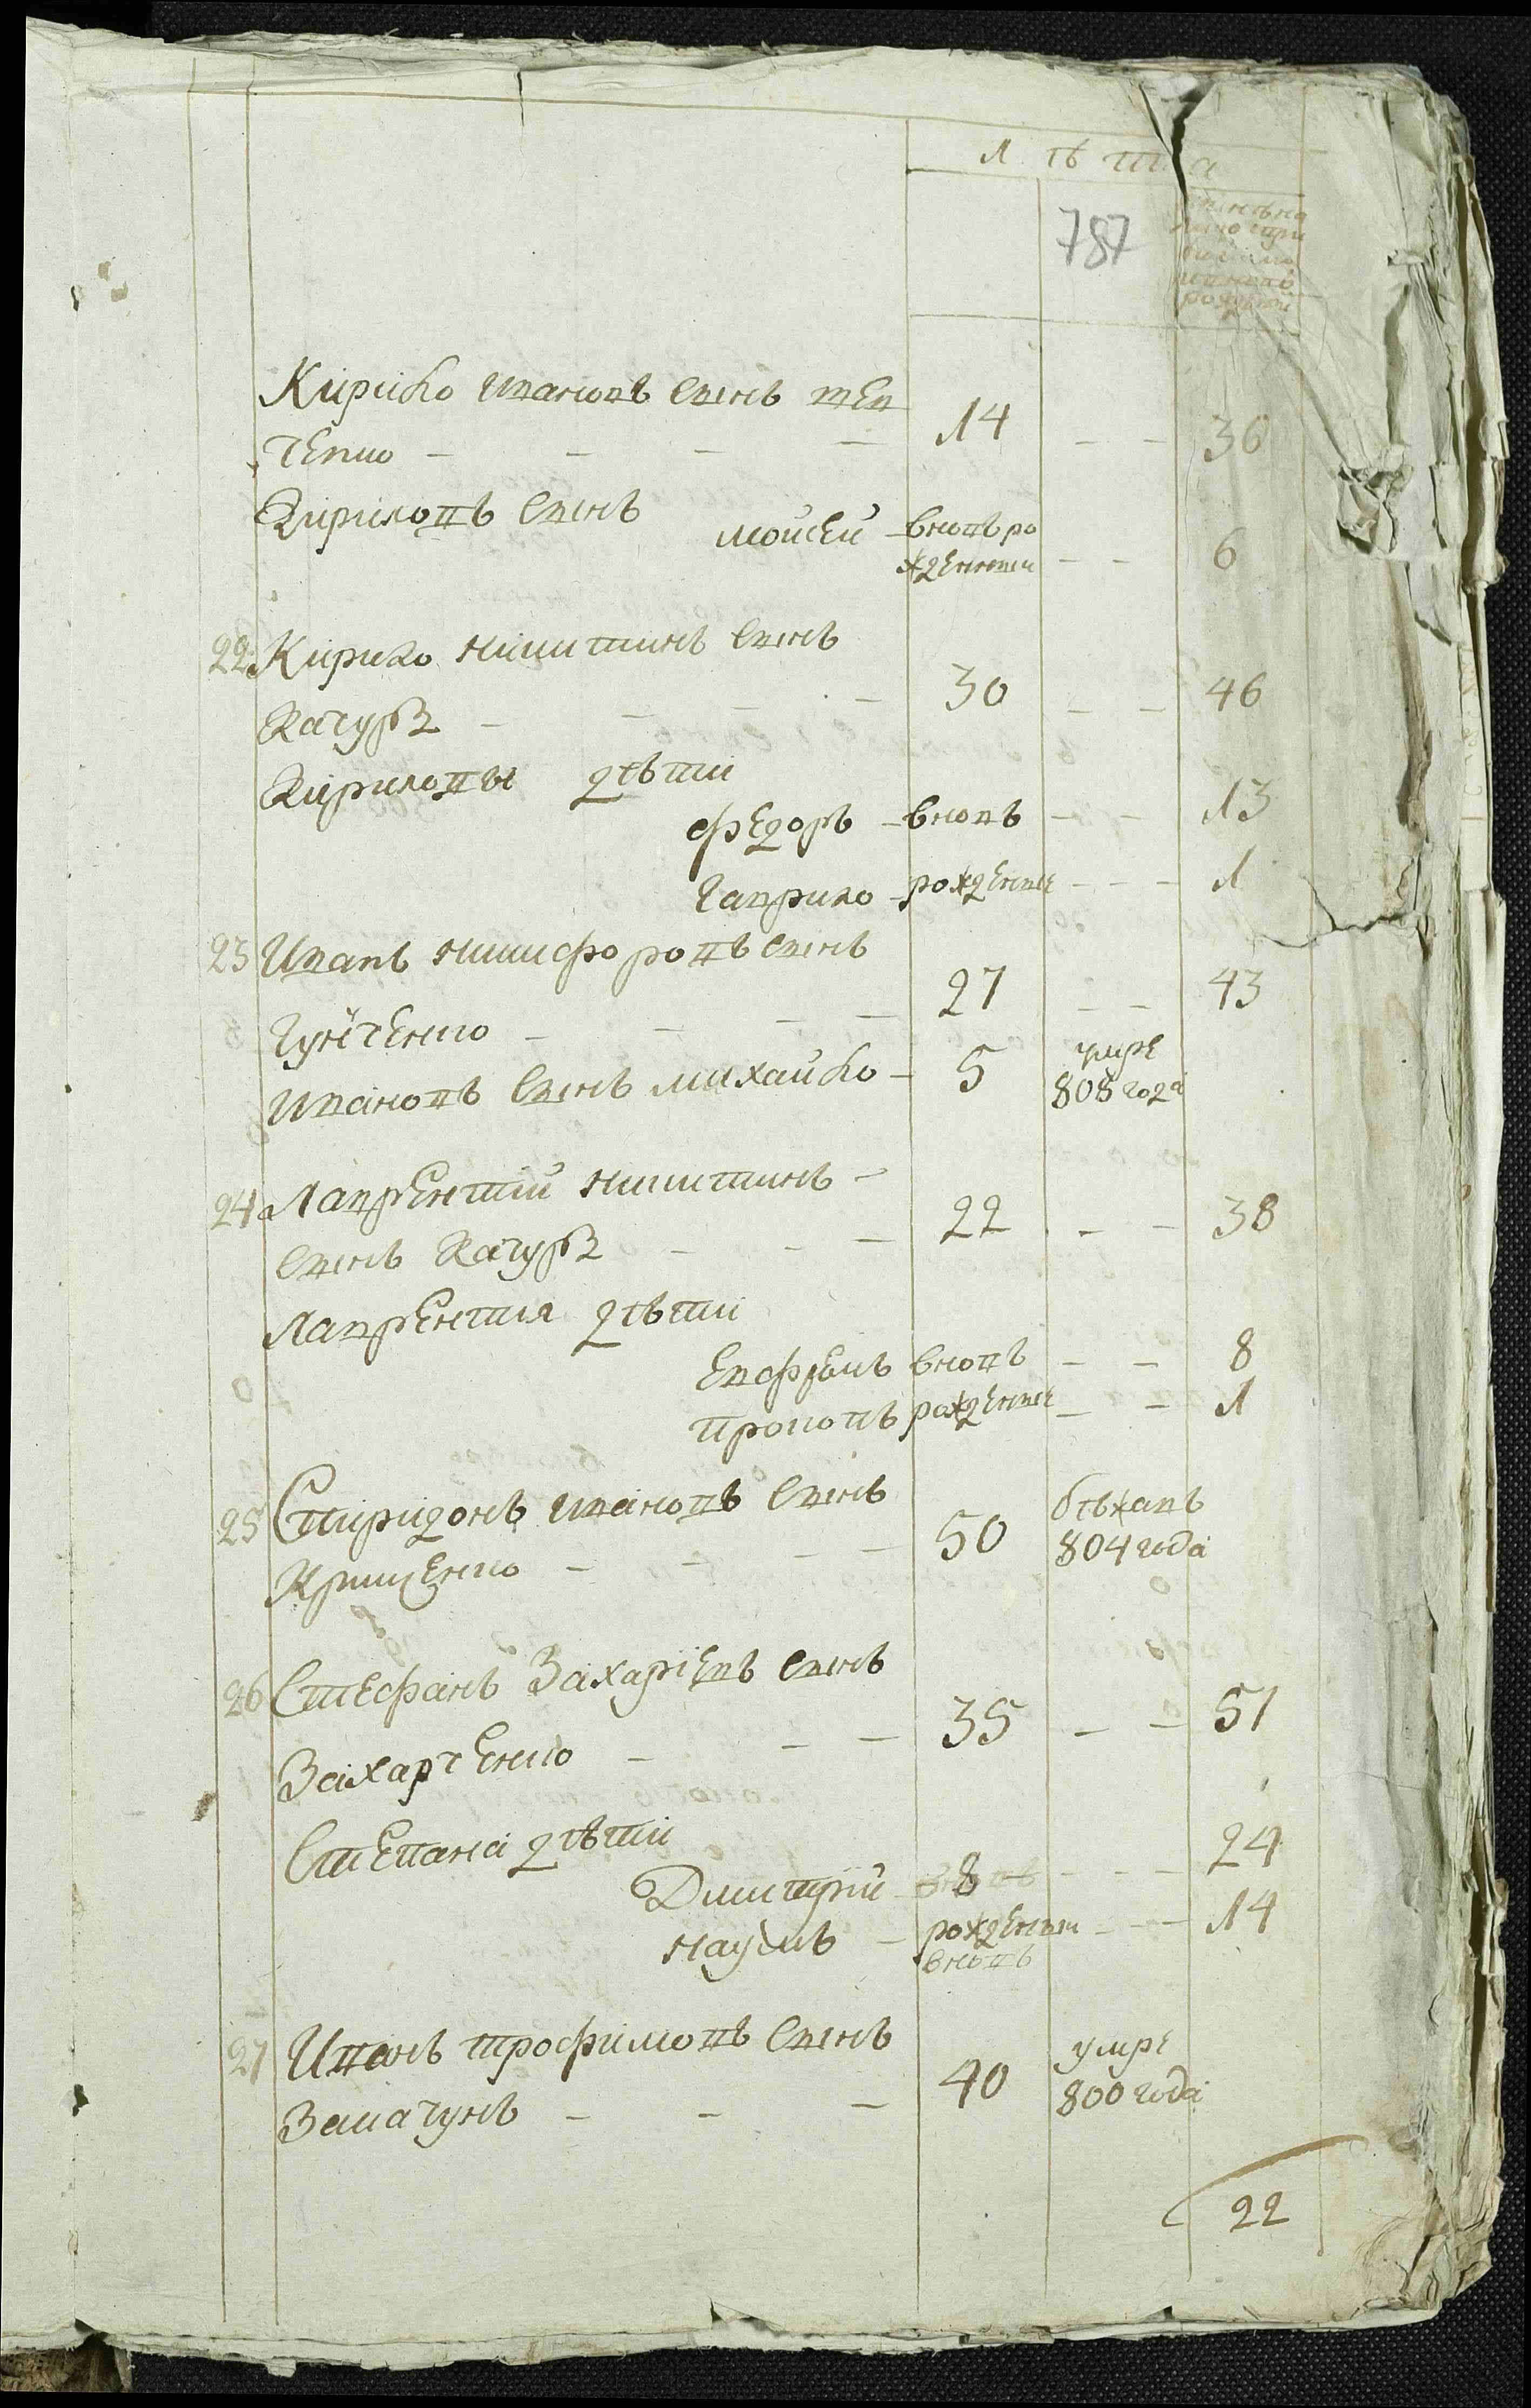 Лѣта
787
Кирило Ивановъ сынъ Шев
ченко 14 30
Кириловъ сынъ
Мойсей вновь ро
жденный 6
22 Кирило Никитинъ сынъ
Качура 30 46
Кириловы дѣти
Федоръ вновь 13
Гаврило рожденые 1
23 Иванъ Никифоровъ сынъ
Гунченко 27 43
Ивановъ сынъ Михайло 5 умре
808 года
24 Лаврентий Никитинъ
сынъ Качура 22 38
Лаврентия дѣти
Евфремъ вновь 8
Прокопъ рожденые 1
25 Спиридонъ Ивановъ сынъ
Крищенко 50 бѣжалъ
804 года
26 Стефанъ Захарїевъ сынъ
Захарченко 35 51
Степана дѣти
Дмитрїй 8 24
Наумъ рожденый 14
вновь
27 Иванъ Трофимовъ сынъ
40 умре
800 года
22